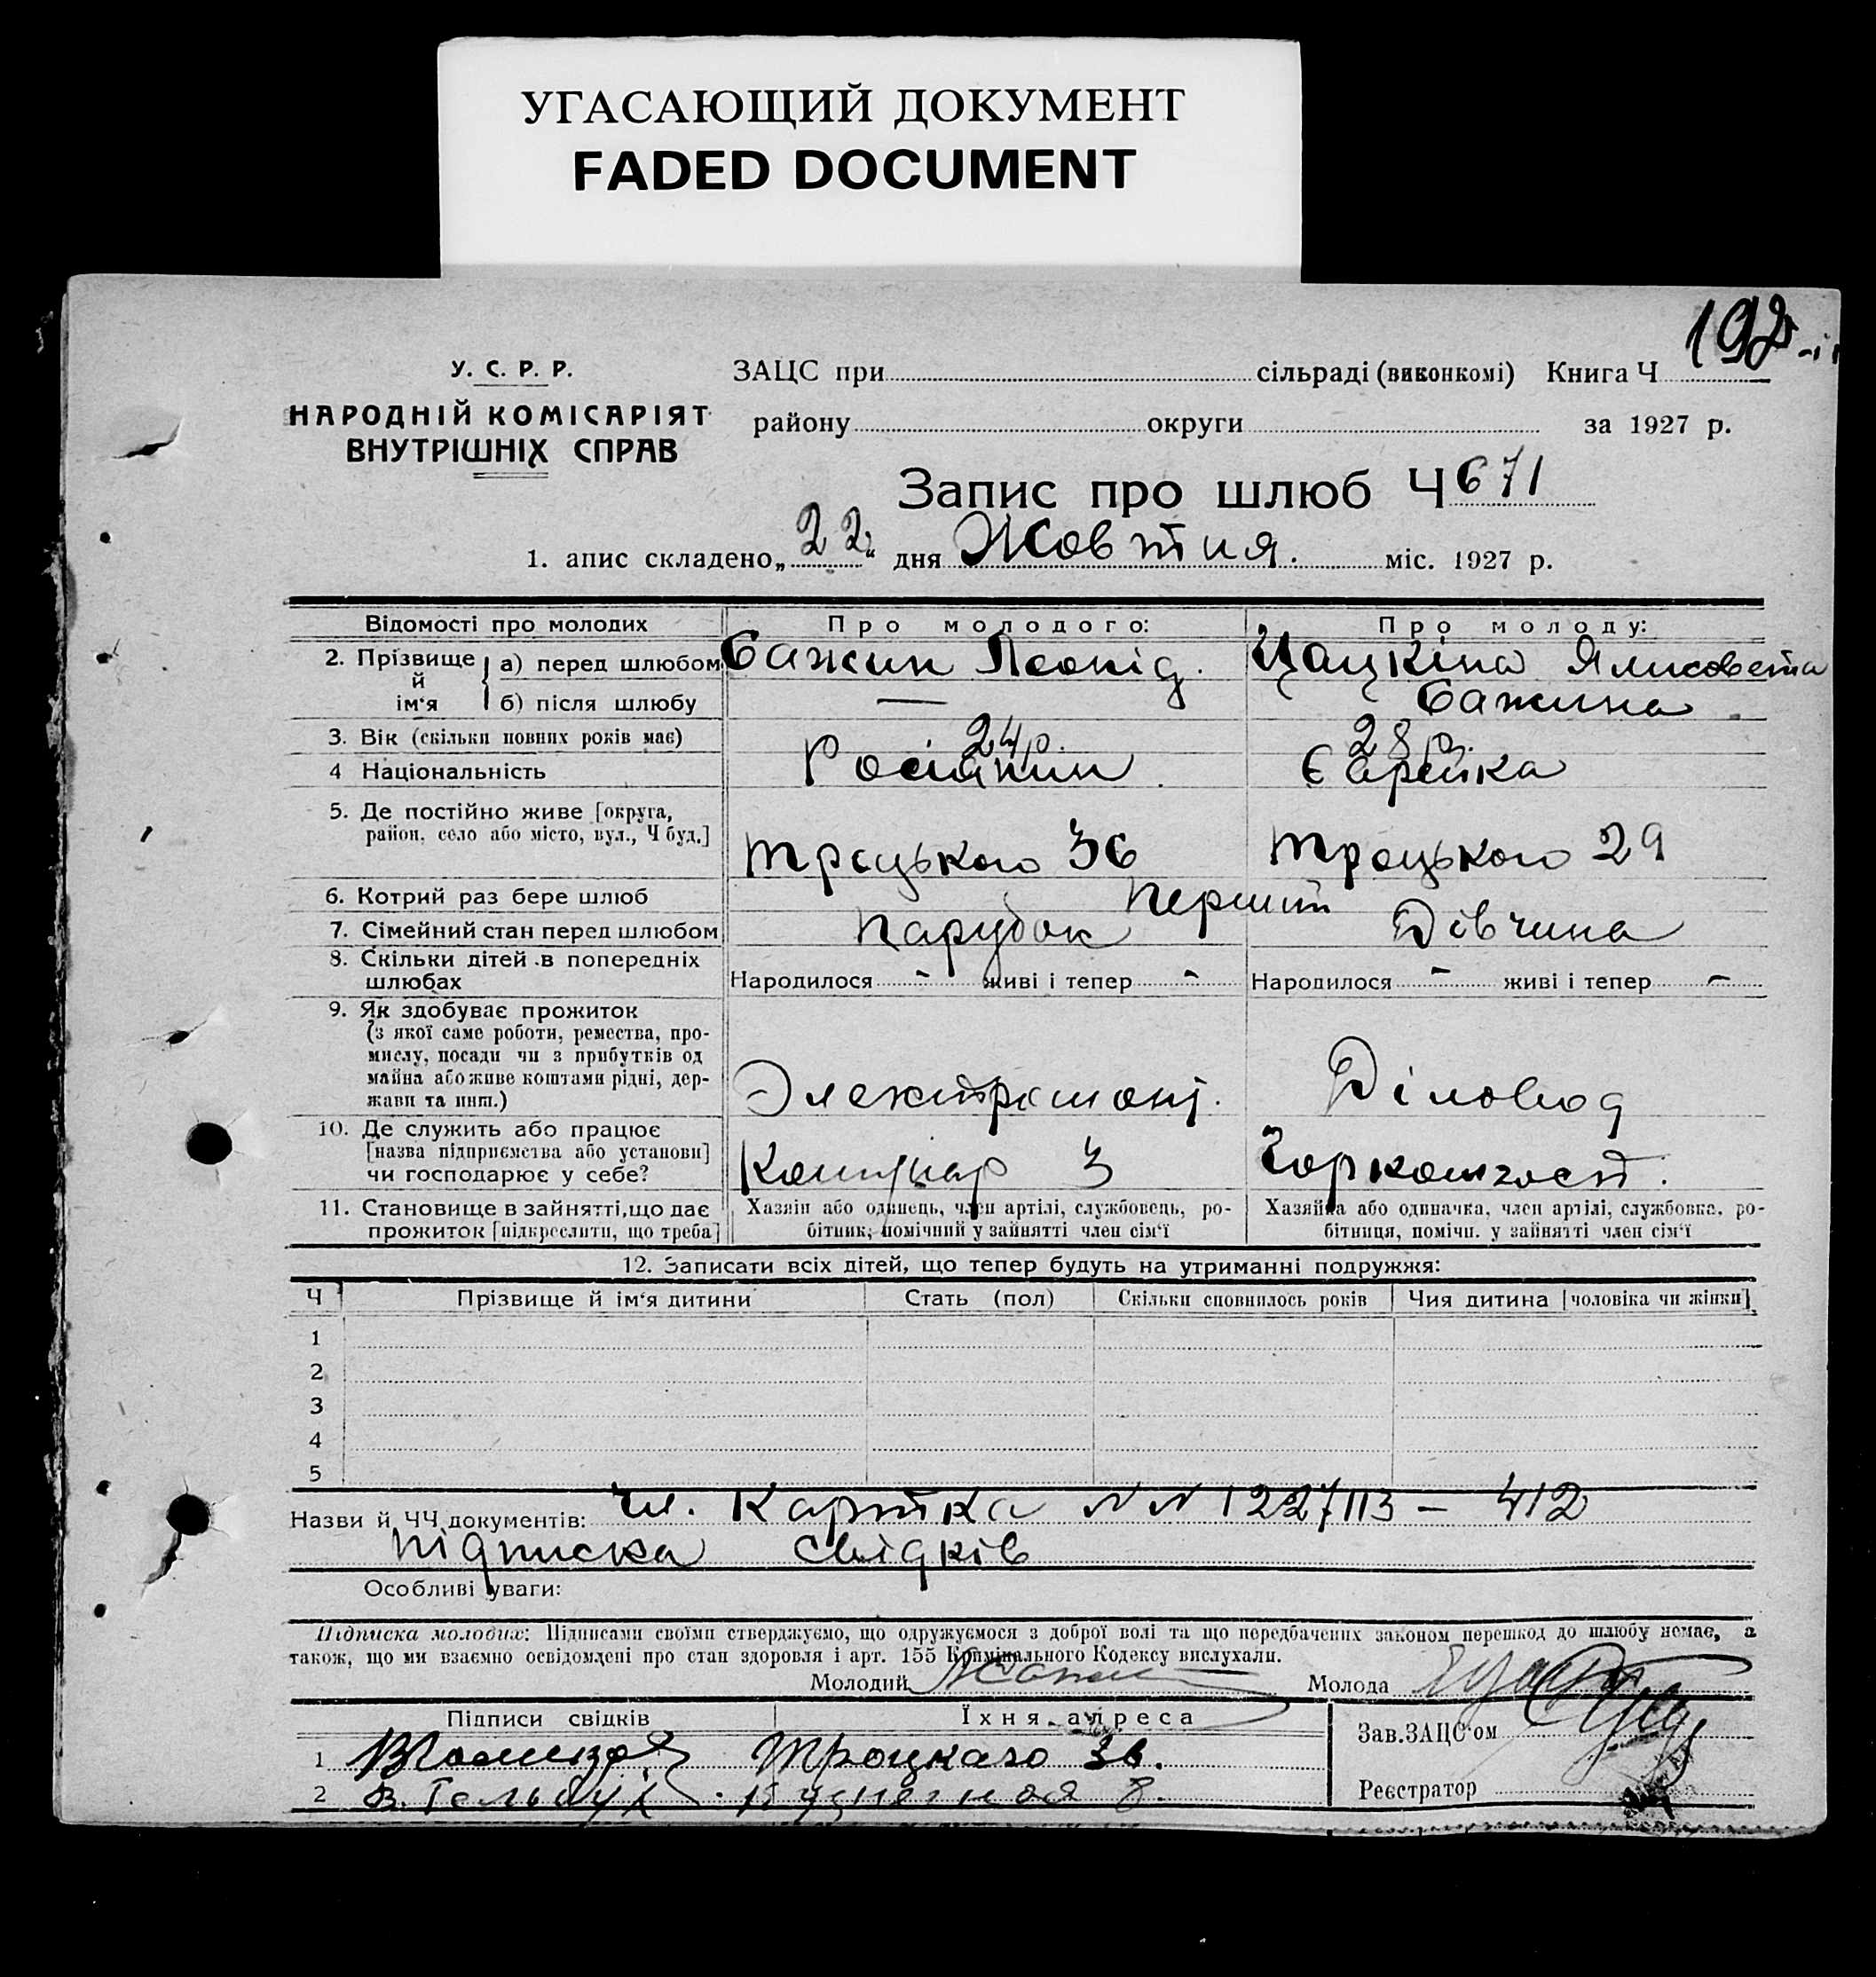 УГАСАЮЩИЙ ДОКУМЕНТ
FADED DOCUMENT
192
У. С. Р. Р.
НАРОДНІЙ КОМІСАРІЯТ
ВНУТРІШНІХ СПРАВ
ЗАЦС при сільраді (виконкомі) Книга Ч
району округи за 1927 р.
Запис про шлюб Ч 671
1. апис складено „22“ дня Жовтня. міс. 1927 р.
Відомості про молодих Про молодого: Про молоду:
2. Прізвище й ім‘я а) перед шлюбом Сажин Леонід. Цацкіна Єлисовета
б) після шлюбу — Сажина
3. Вік (скільки повних років має) 24 р. 28 р.
4 Національність Росіянин Єврейка
5. Де постійно живе [округа,
район, село або місто, вул., Ч буд.] Троцького 36 Троцького 29
6. Котрий раз бере шлюб Перший
7. Сімейний стан перед шлюбом Парубок Дівчина
8. Скільки дітей в попередніх
шлюбах Народилося - живі і тепер - Народилося - живі і тепер -
9. Як здобуває прожиток
(з якої саме роботи, ремества, про-
мислу, посади чи з прибутків од
майна або живе коштами рідні, дер-
жави та инш.) Электромонт. Діловод
10. Де служить або працює
[назва підприємства або установи]
чи господарює у себе? 3
11. Становище в зайнятті, що дає
прожиток [підкреслити, що треба]
Хазяїн або одинець, член артілі, службовець, ро-
бітник, помічний у зайнятті член сім‘ї
Хазяйка або одиначка, член артілі, службовка, ро-
бітниця, помічн. у зайнятті член сім‘ї
12. Записати всіх дітей, що тепер будуть на утриманні подружжя:
Ч Прізвище й ім‘я дитини Стать (пол) Скільки сповнилось років Чия дитина [чоловіка чи жінки]
1
2
3
4
5
Назви й ЧЧ документів: чл. Картка NN 1227113 — 412
підписка свідків
Особливі уваги:
Підписка молодих: Підписами своїми стверджуємо, що одружуємося з доброї волі та що передбачених законом перешкод до шлюбу немає, а
також, що ми взаємно освідомлені про стан здоровля і арт. 155 Кримінального Кодексу вислухали.
Молодий Молода
Підписи свідків Їхня адреса Зав. ЗАЦС‘ом
1 Троцкого 36.
2 В. Гольбух. Кузнечная 8. Реєстратор